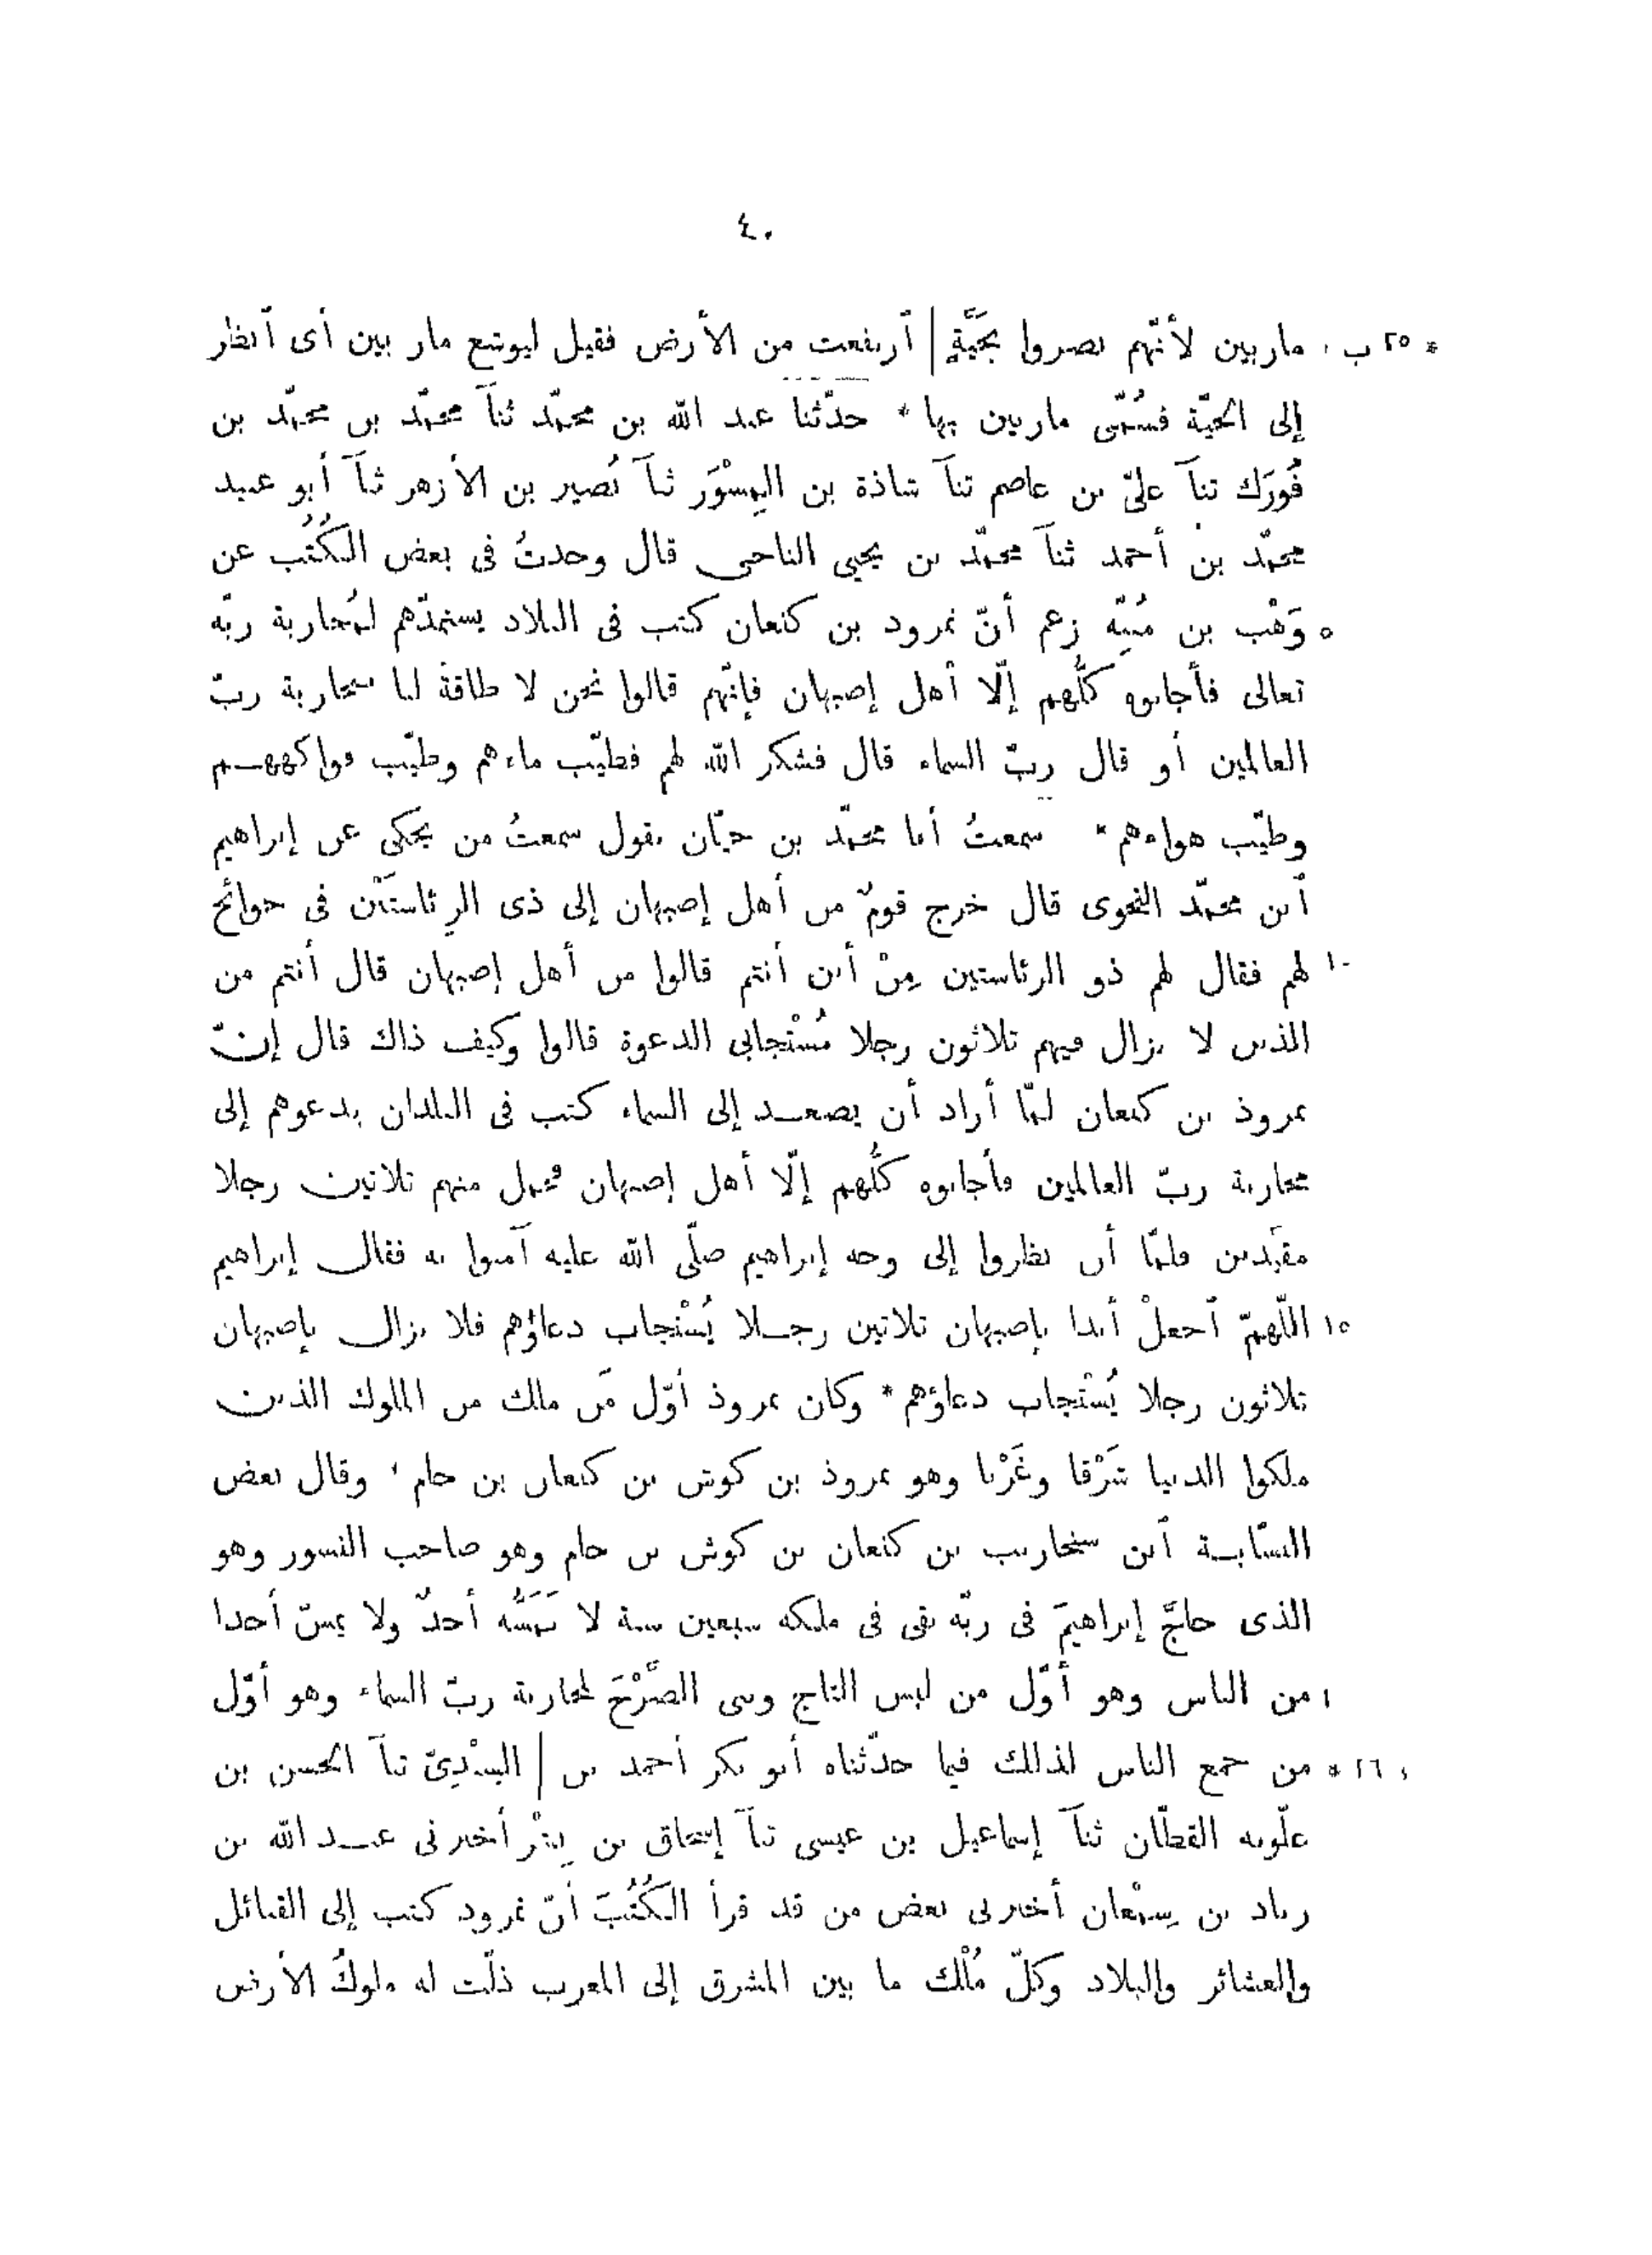 ٤٠
* ٢٥ ب ماربين لأنّهم بصروا بحَيَّةٍ | ٱرتفعت من الأرض فقيل ليوشع مار بين أى ٱنظر
إلى الحيّة فسُمّى ماربين بها * حدّثنا عبد الله بن محمّد ثنآ محمّد بن محمّد بن
فُورَك ثنآ علىّ بن عاصم ثنآ شاذة بن المِسْوَر ثنآ نُصير بن الأزهر ثنآ أبو عبيد
محمّد بن أحمد ثنآ محمّد بن يحيى الناجى قال وجدتُ فى بعض الكُتُب عن
٥ وَهْب بن مُنبِّه زعم أنّ نمرود بن كنعان كتب فى البلاد يستمدّهم لمُحاربة ربّه
تعالى فأجابوه كلُّهم إلّا أهل إصبهان فإنّهم قالوا نحن لا طاقة لنا بمحاربة ربّ
العالمين أو قال ربّ السماء قال فشكر الله لهم فطيّب ماءهم وطيّب فواكههم
وطيّب هواءهم * سمعتُ أبا محمّد بن حيّان يقول سمعتُ من يحكى عن إبراهيم
ٱبن محمّد النحوى قال خرج قومٌ من أهل إصبهان إلى ذى الرِئاستَيْن فى حوائج
١٠ لهم فقال لهم ذو الرئاستين مِنْ أين أنتم قالوا من أهل إصبهان قال أنتم من
الذين لا يزال فيهم ثلاثون رجلا مُسْتجابى الدعوة قالوا وكيف ذاك قال إنّ
نمروذ بن كنعان لمّا أراد أن يصعد إلى السماء كتب فى البلدان يدعوهم إلى
محاربة ربّ العالمين فأجابوه كلُّهم إلّا أهل إصبهان فحمل منهم ثلاثين رجلا
مقيّدين فلمّا أن نظروا إلى وجه إبراهيم صلّى الله عليه آمنوا به فقال إبراهيم
١٥ اللّهمّ ٱجعلْ أبدا بإصبهان ثلاثين رجلا يُسْتجاب دعاؤهم فلا يزال بإصبهان
ثلاثون رجلا يُسْتجاب دعاؤهم * وكان نمروذ أوّل مَن ملك من الملوك الذين
ملكوا الدنيا شَرْقا وغَرْبا وهو نمروذ بن كوش بن كنعان بن حام ، وقال بعض
النسّابة ٱبن سنحاريب بن كنعان بن كوش بن حام وهو صاحب النسور وهو
الذى حاجّ إبراهيمَ فى ربّه بقى فى ملكه سبعين سنة لا يَمَسُّه أحدٌ ولا يمسّ أحدا
من الناس وهو أوّل من لبس التاج وبنى الصَّرْحَ لمحاربة ربّ السماء وهو أوّل
٢٦ * من جمع الناس لذلك فيما حدّثناه أبو بكر أحمد بن | السِنْدِىّ ثنآ الحسن بن
علّويه القطّان ثنآ إسماعيل بن عيسى ثنآ إسحاق بن بِشْر أخبرنى عبد الله بن
زياد بن سِمْعان أخبرنى بعض من قد قرأ الكُتُبَ أنّ نمرود كتب إلى القبائل
والعشائر والبلاد وكلّ مُلْك ما بين المشرق إلى المغرب ذلّت له ملوكُ الأرض